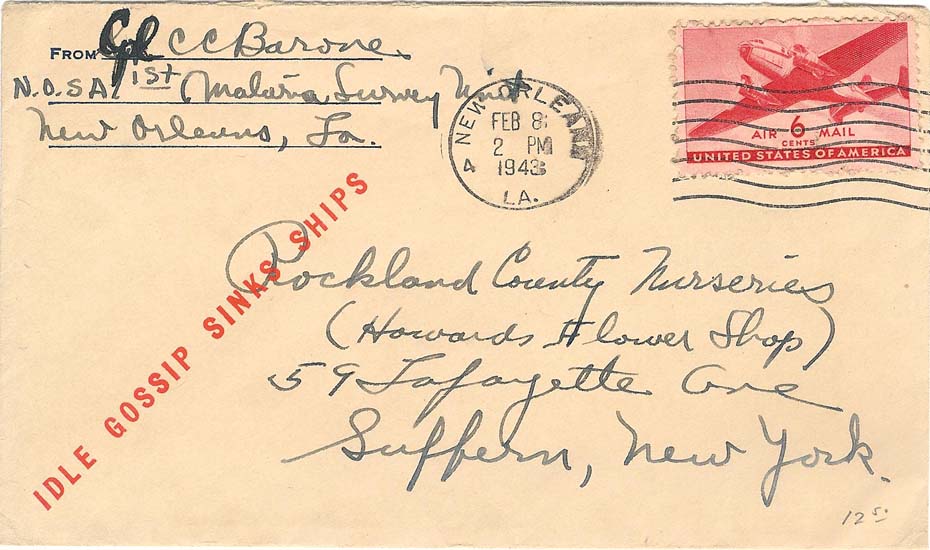 FROM Cpl C C Barone
N.O.S.A. 1st Malaria Survey Unit
New Orleans, La.
NEW ORLEANS
4
FEB 8
2 PM
1943
LA.
AIR 6 MAIL
CENTS
UNITED STATES OF AMERICA
IDLE GOSSIP SINKS SHIPS
Rockland County Nurseries
(Howards Flower Shop)
59 Lafayette Ave
Suffern, New York.
12 50